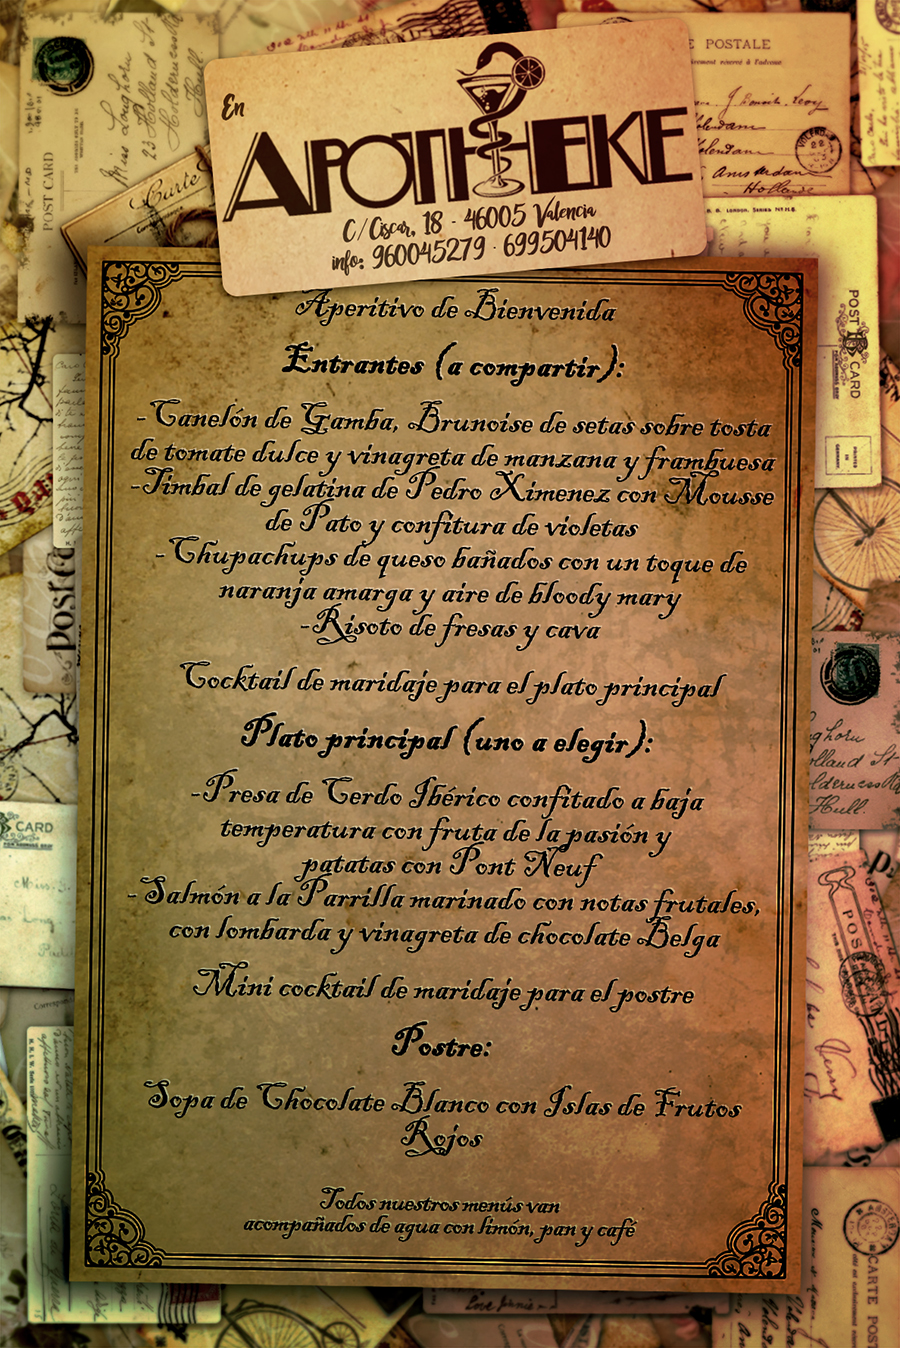 En
APOTHEKE
C/Ciscar, 18 - 46005 Valencia
info: 960045279 - 699504140
Aperitivo de Bienvenida
Entrantes (a compartir):
-Canelón de Gamba, Brunoise de setas sobre tosta
de tomate dulce y vinagreta de manzana y frambuesa
-Timbal de gelatina de Pedro Ximenez con Mousse
de Pato y confitura de violetas
-Chupachups de queso bañados con un toque de
naranja amarga y aire de bloody mary
-Risoto de fresas y cava
Cocktail de maridaje para el plato principal
Plato principal (uno a elegir):
-Presa de Cerdo Ibérico confitado a baja
temperatura con fruta de la pasión y
patatas con Pont Neuf
-Salmón a la Parrilla marinado con notas frutales,
con lombarda y vinagreta de chocolate Belga
Mini cocktail de maridaje para el postre
Postre:
Sopa de Chocolate Blanco con Islas de Frutos
Rojos
Todos nuestros menús van
acompañados de agua con limón, pan y café
POST CARD
Miss Longhorn
23 Holland St
Holderness Rd
Hull.
Carte
POSTALE
Volendam
Amsterdam
Hollande
POST CARD
CARD
CARTE POSTALE